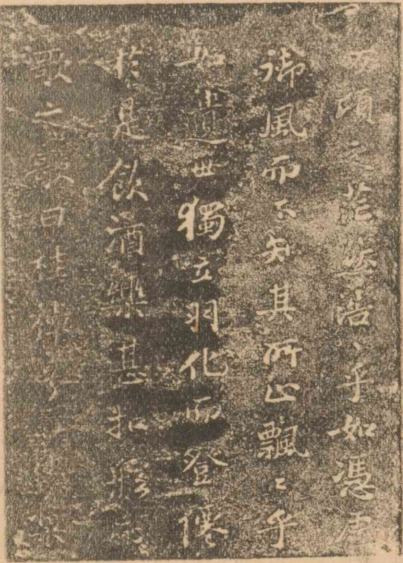 万頃之茫然浩〻乎如馮虚
御風而不知其所止飄〻乎
如遺世獨立羽化而登僊
於是飲酒樂甚扣舷而
歌之歌曰桂棹兮蘭槳